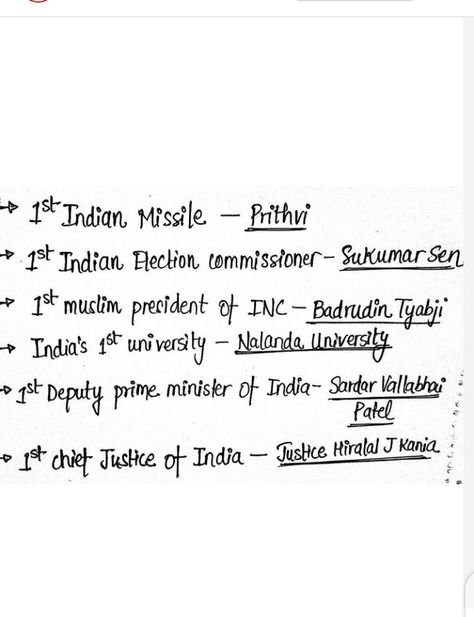 → 1st Indian Missile – Prithvi
→ 1st Indian Election commissioner – Sukumar Sen
→ 1st muslim precident of INC – Badrudin Tyabji
→ India's 1st university – Nalanda University
→ 1st Deputy prime minister of India – Sardar Vallabhai
Patel
→ 1st chief Justice of India – Justice Hiralal J Kania